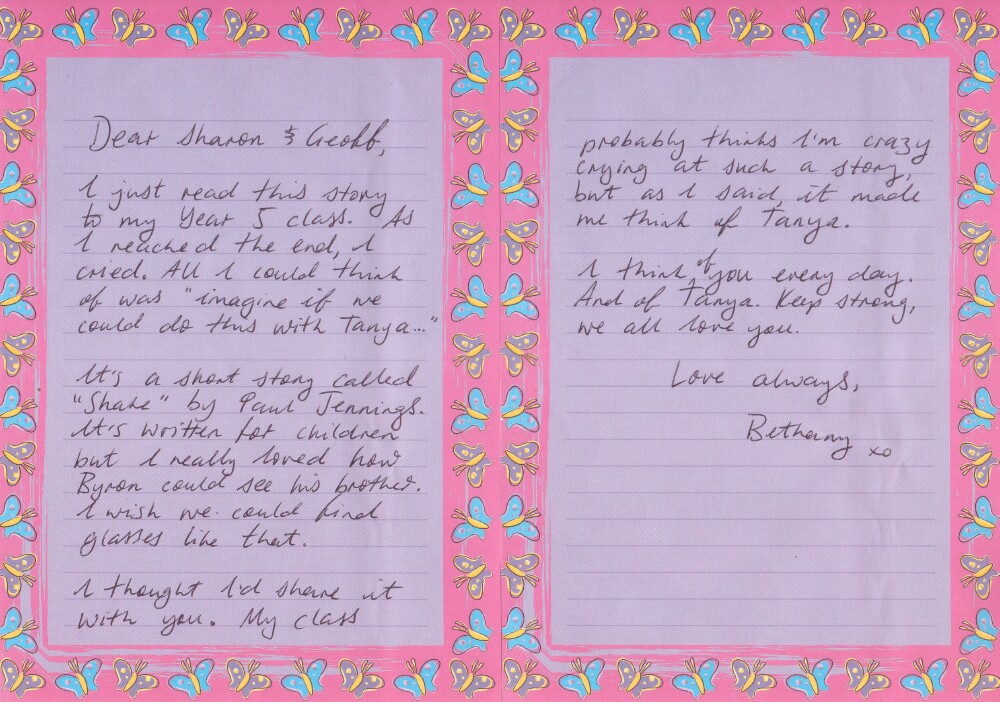 Dear Sharon & Geoff,
I just read this story
to my Year 5 class. As
I reached the end, I
cried. All I could think
of was "imagine if we
could do this with Tanya..."
It's a short story called
"Shake" by Paul Jennings.
It's written for children
but I really loved how
Byron could see his brother.
I wish we could find
glasses like that.
I thought I'd share it
with you. My class
probably thinks I'm crazy
crying at such a story,
but as I said, it made
me think of Tanya.
I think of you every day.
And of Tanya. Keep strong,
we all love you.
Love always,
Bethany xo